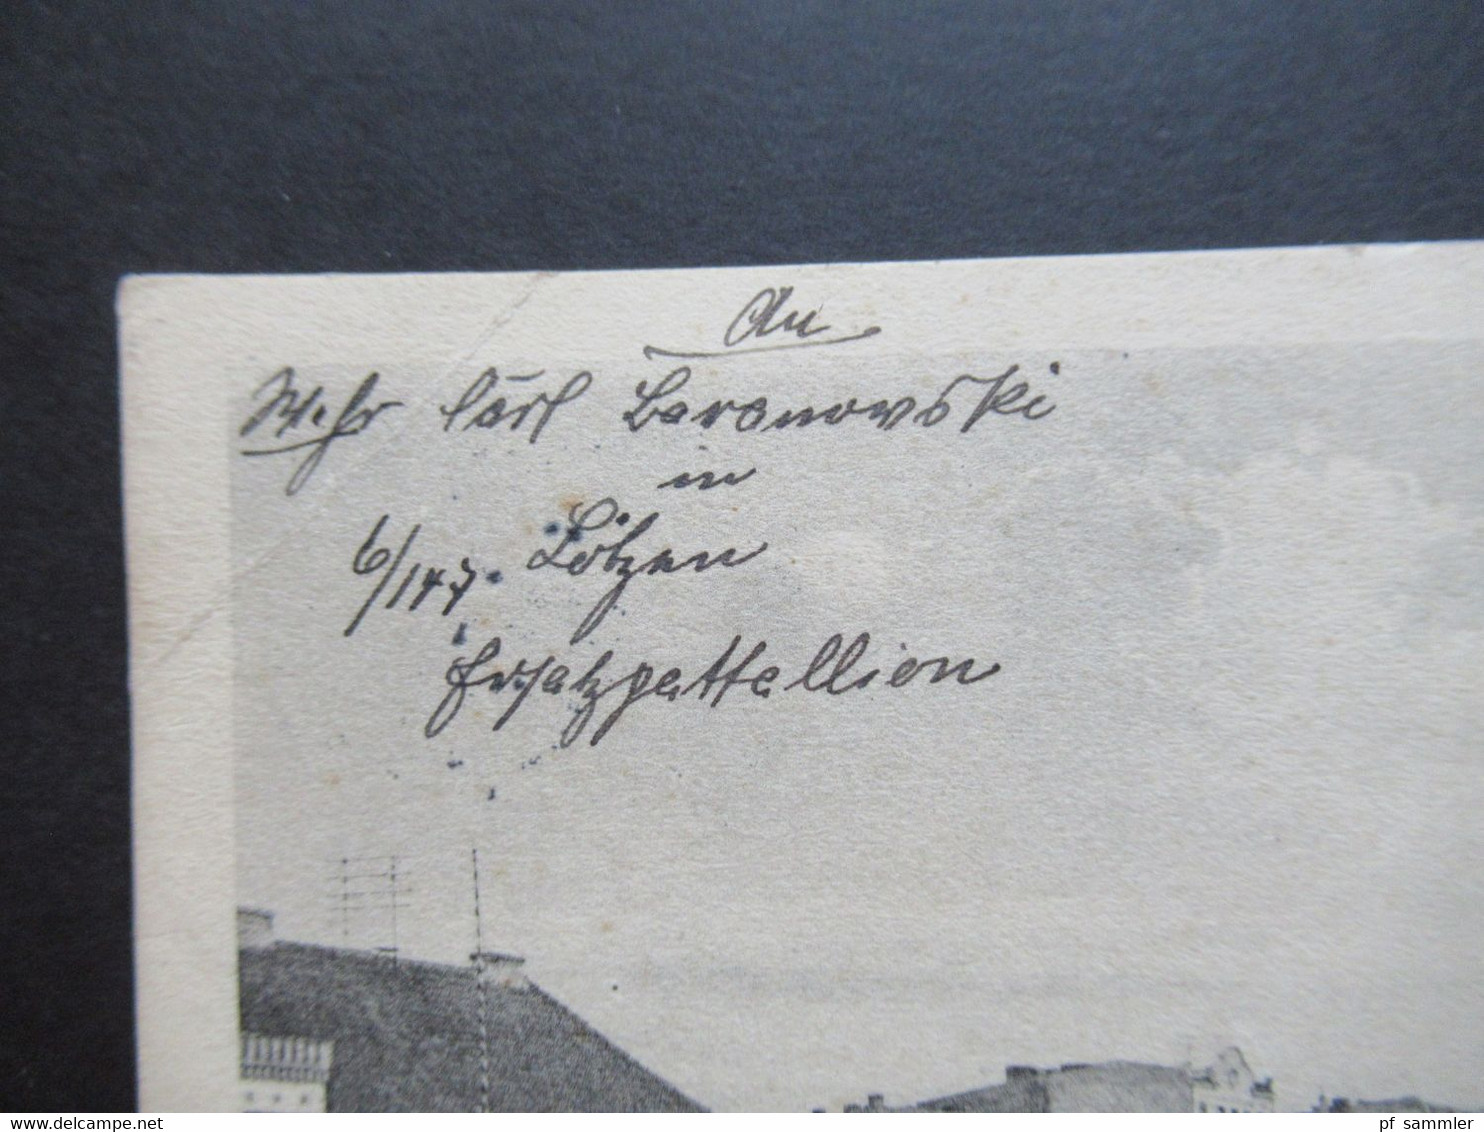 An
Wehr Carl Baranowski
in
6/147. Lötzen
Ersatzpattallion
pf_sammler